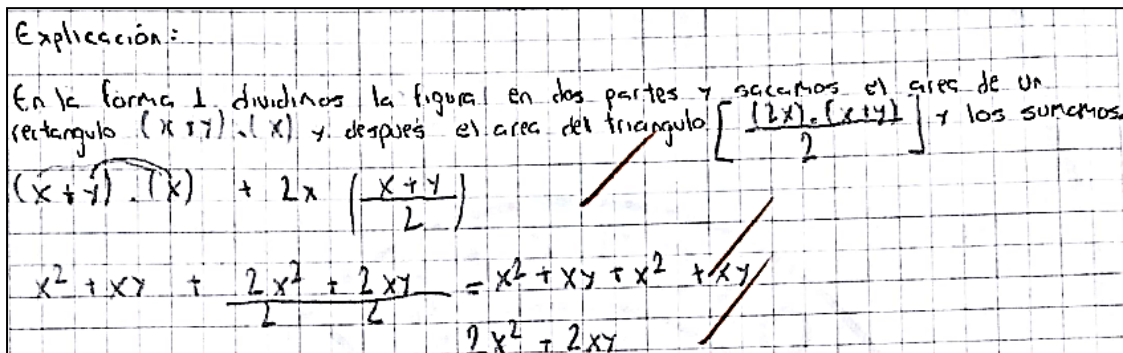 Explicación:
En la forma 1 dividimos la figura en dos partes y sacamos el area de un
rectangulo (x+y).(x) y después el area del triangulo [(2x).(x+y)/2] y los sumamos.
(x+y).(x) + 2x (x+y/2)
x² + xy + 2x²/2 + 2xy/2 = x² + xy + x² + xy
2x² + 2xy